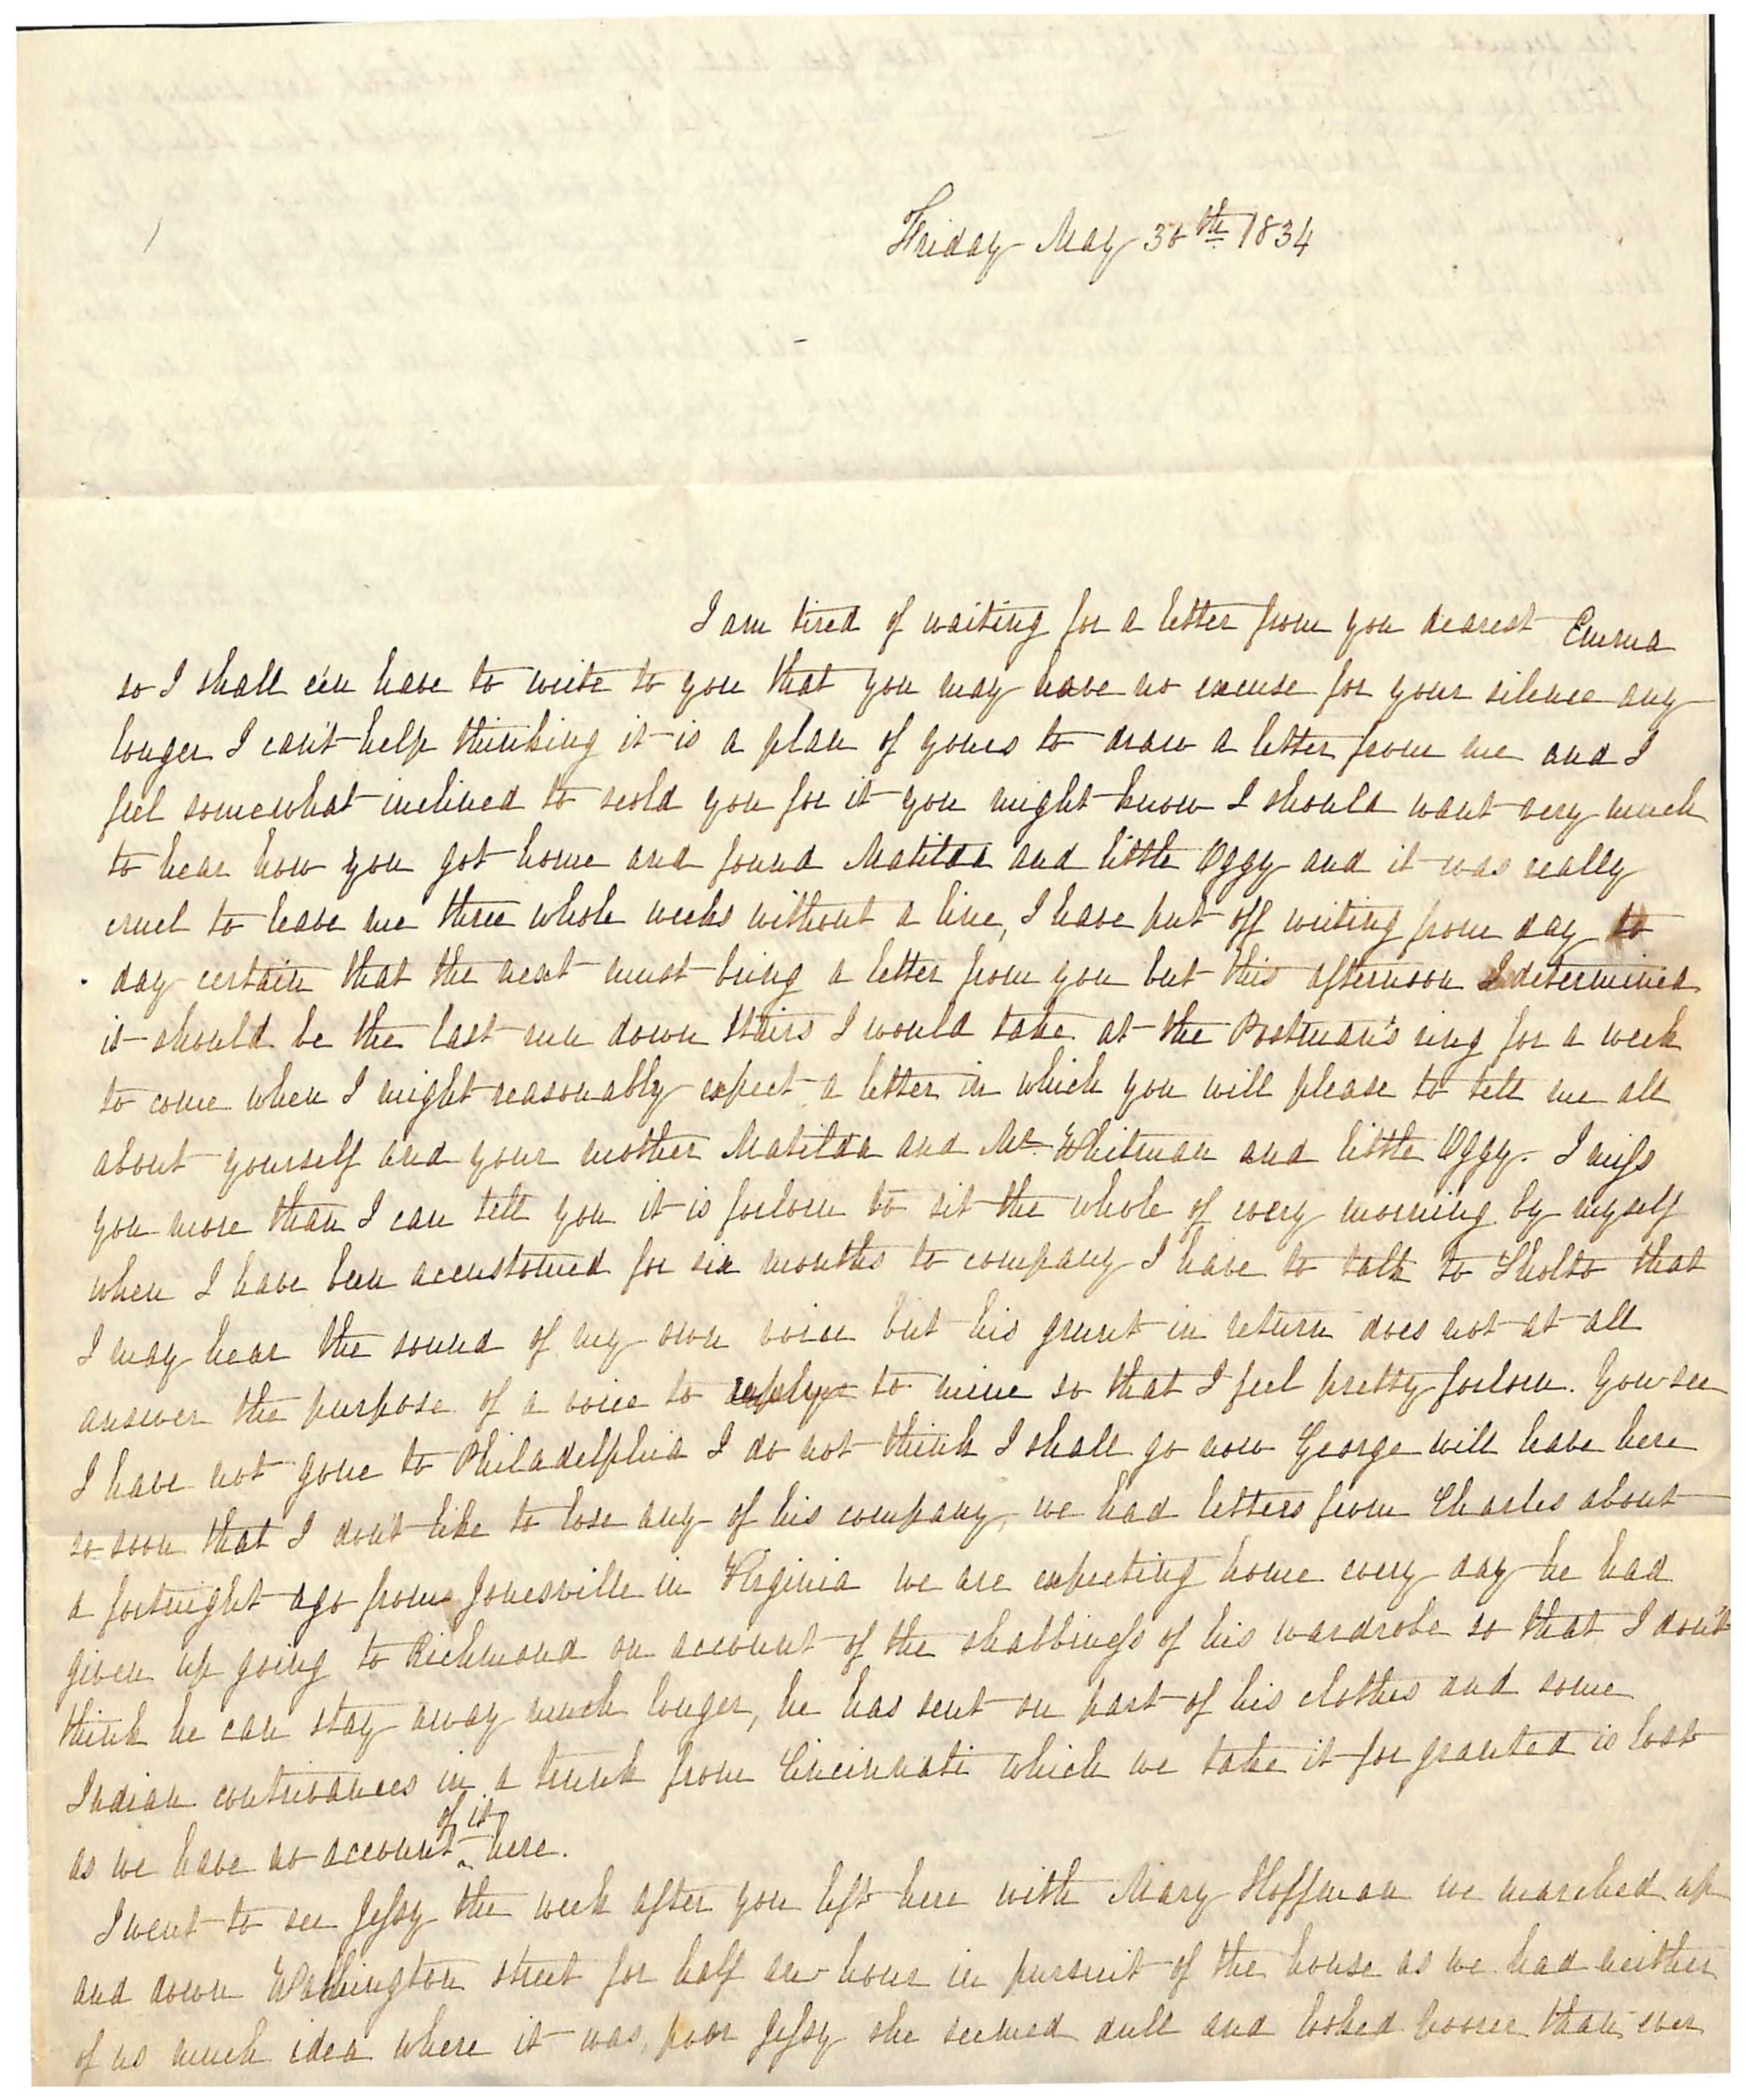 Friday May 30th 1834
I am tired of waiting for a letter from you dearest Emma
so I shall e'en have to write to you that you may have no excuse for your silence any
longer I can't help thinking it is a plan of yours to draw a letter from me and I
feel somewhat inclined to scold you for it you might know I should want very much
to hear how you got home and found Matilda and little Oggy and it was really
cruel to leave me three whole weeks without a line, I have put off writing from day to
day certain that the next must bring a letter from you but this afternoon I determined
it should be the last run down stairs I would take at the Postman's ring for a week
to come when I might reasonably expect a letter in which you will please to tell me all
about yourself and your mother Matilda and Mr Whitman and little Oggy. I miss
you more than I can tell you it is forlorn to sit the whole of every morning by myself
when I have been accustomed for six months to company I have to talk to Sholto that
I may hear the sound of my own voice but his grunt in return does not at all
answer the purpose of a voice to reply to mine so that I feel pretty forlorn. You see
I have not gone to Philadelphia I do not think I shall go now George will leave here
so soon that I don't like to lose any of his company, we had letters from Charles about
a fortnight ago from Jonesville in Virginia we are expecting home every day he had
given up going to Richmond on account of the shabbiness of his wardrobe so that I don't
think he can stay away much longer, he has sent on part of his clothes and some
Indian contrivances in a trunk from Cincinnati which we take it for granted is lost
as we have no account of it here.
I went to see Jessy the week after you left here with Mary Hoffman we marched up
and down Washington street for half an hour in pursuit of the house as we had neither
of us much idea where it was, poor Jessy she seemed dull and looked than ever